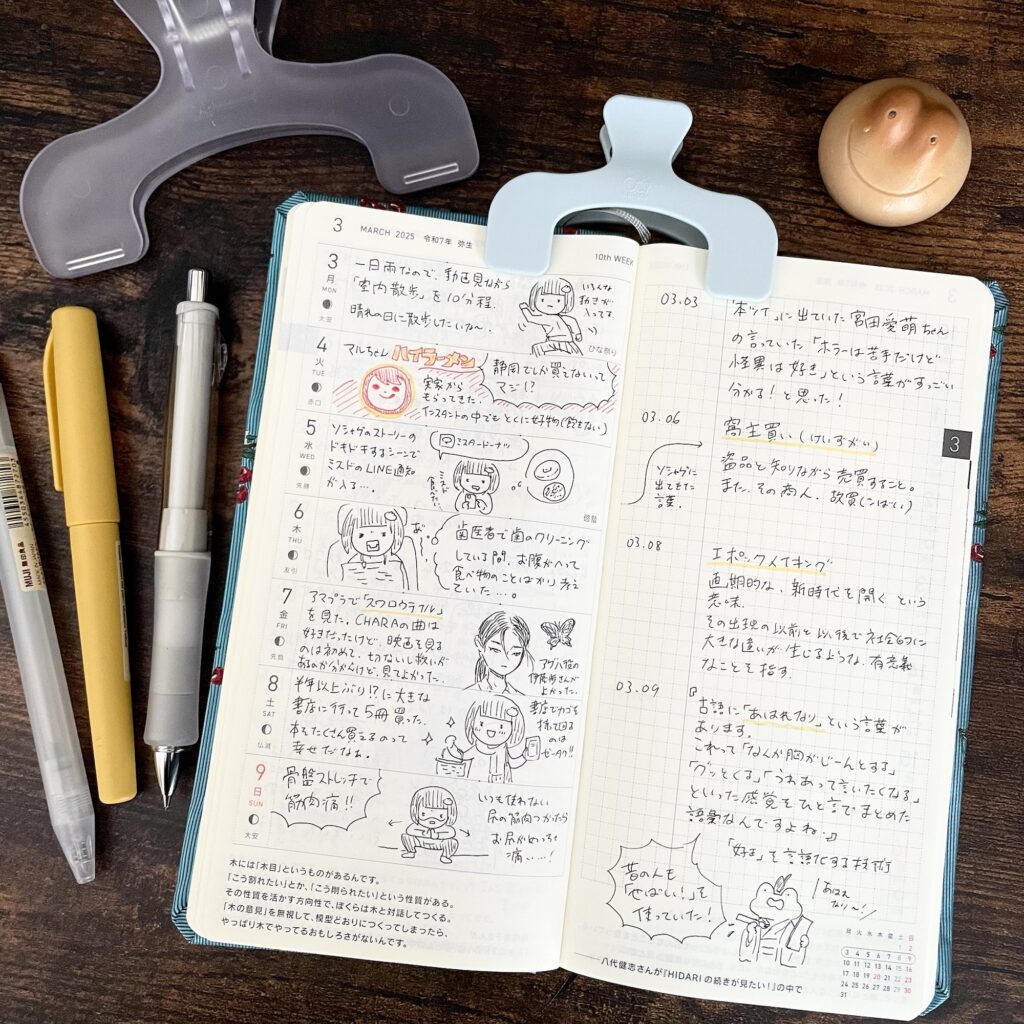 3 MARCH 2025 令和7年 弥生
10th WEEK
3
月
MON
大安
一日雨なので、動画見ながら
「室内散歩」を10分程。
晴れの日に散歩したいな〜。
いろんな
動きが
入ってる
ひな祭り
4
火
TUE
赤口
マルちゃん ハイラーメン
実家から
もらってきた。
インスタントの中でもとくに好物(飽きない)
静岡でしか買えないって
マジ!?
5
水
WED
先勝
ソシャゲのストーリーの
ドキドキするシーンで
ミスドのLINE通知
が入る…。
ミスタードーナツ
ミスド
啓蟄
6
木
THU
友引
あ〜
歯医者で歯のクリーニング
している間、お腹がへって
食べ物のことばかり考え
ていた…。
7
金
FRI
先負
アマプラで「スワロウテイル」
を見た。CHARAの曲は
好きだったけど、映画を見る
のは初めて、切ないし救いが
あるのか分からんけど、見てよかった。
アゲハ役の
伊藤歩さんが
よかった。
8
土
SAT
仏滅
半年以上ぶり!?に大きな
書店に行って5冊買った。
本をたくさん買えるのって
幸せだなぁ。
書店でカゴを
持って回る
のは
ゼータク!!
9
日
SUN
大安
骨盤ストレッチで
筋肉痛!!
いつも使わない
尻の筋肉つかったら
お尻がめっちゃ
痛い…!
木には「木目」というものがあるんです。
「こう割れたい」とか、「こう削られたい」という性質がある。
その性質を活かす方向性で、ぼくらは木と対話してつくる。
「木の意見」を無視して、模型どおりにつくってしまったら、
やっぱり木でやってるおもしろさがないんです。
03.03
に出ていた宮田愛萌ちゃん
の言っていた「ホラーは苦手だけど
怪異は好き」という言葉がすっごい
分かる!と思った!
03.06
窩主買い(けいずかい)
ソシャゲに
出てきた
言葉。
盗品と知りながら売買すること。
また、その商人。故買(こばい)
3
03.08
エポックメイキング
画期的な、新時代を開くという
意味。
その出現の以前と以後で社会的に
大きな違いが生じるような、有意義
なことを指す。
03.09
『古語に「あはれなり」という言葉が
あります。
これって「なんか胸がじーんとする」
「グッとくる」「うわあって言いたくなる」
といった感覚をひと言でまとめた
語彙なんですよね。』
「好き」を言語化する技術
昔の人も
「やばい!」を
使っていた!
あはれ
なり〜!
月 火 水 木 金 土 日
1 2
3 4 5 6 7 8 9
10 11 12 13 14 15 16
17 18 19 20 21 22 23
24 25 26 27 28 29 30
31
——八代健志さんが『HIDARIの続きが見たい!』の中で
MUJI 無印良品